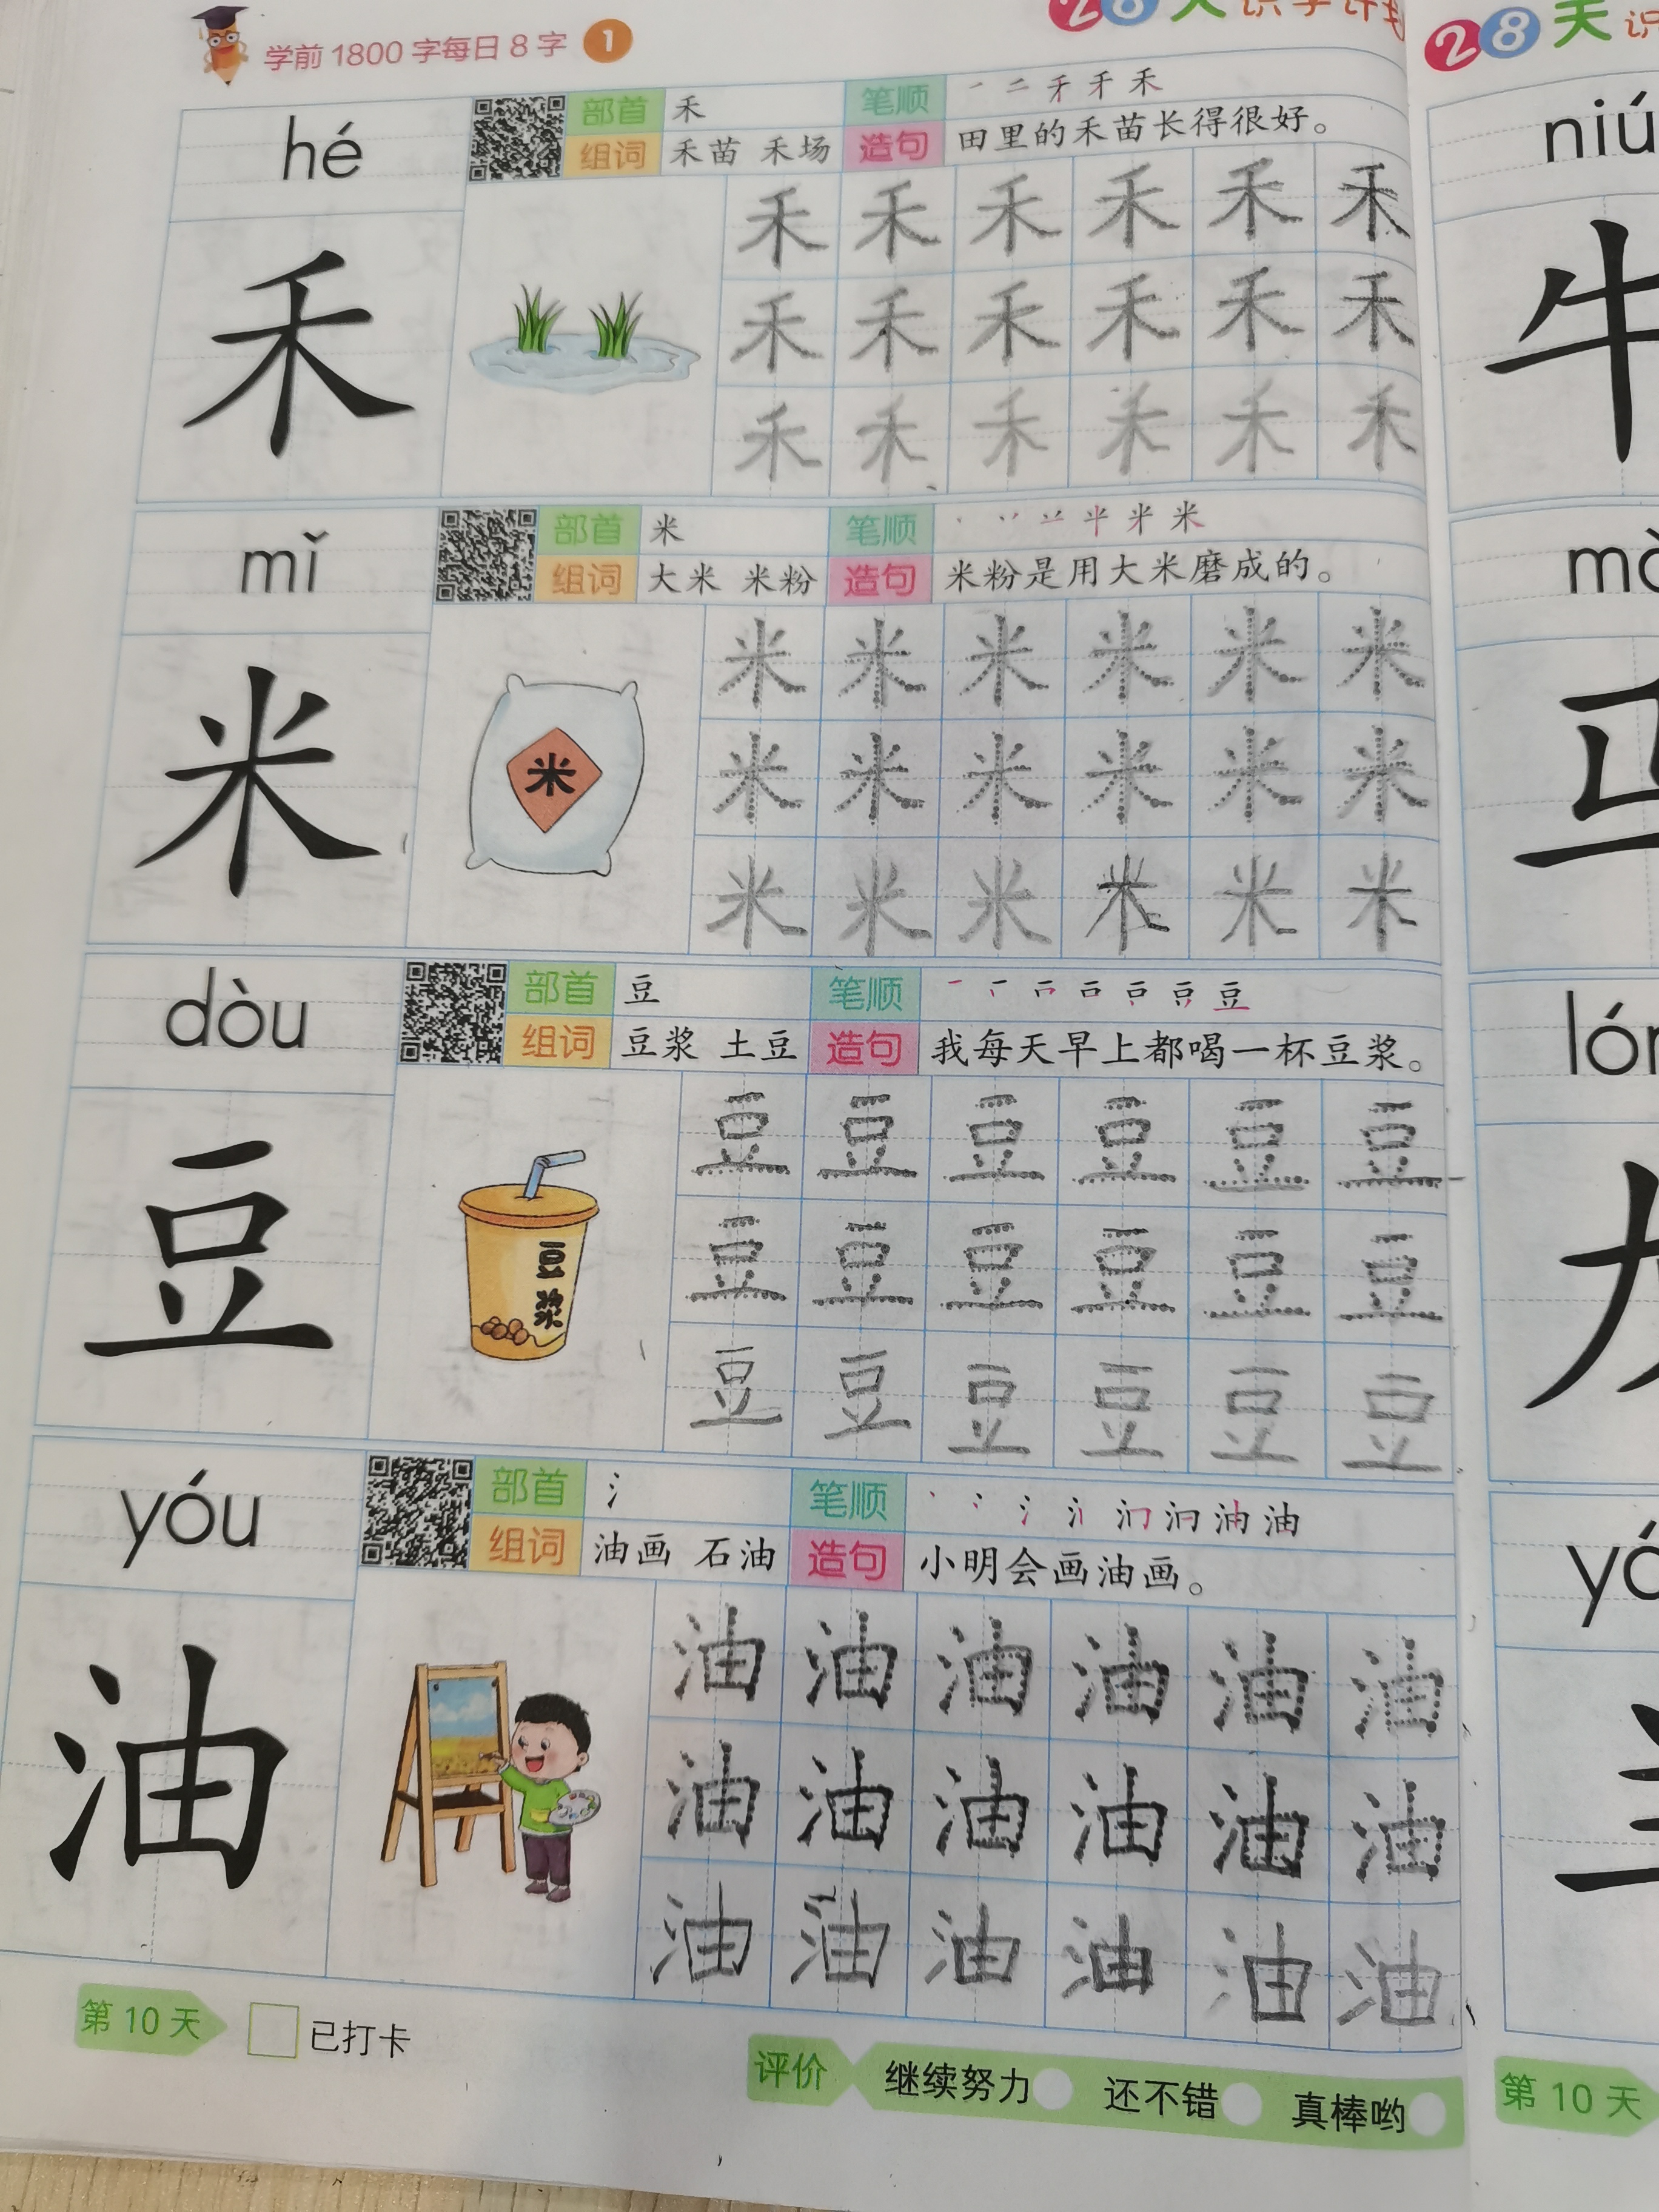 学前1800字每日8字 1
28天识字计
hé
部首 禾 笔顺
组词 禾苗 禾场 造句 田里的禾苗长得很好。
禾
禾 禾 禾 禾 禾 禾
禾 禾 禾 禾 禾 禾
禾 禾 禾 禾 禾 禾
mǐ
部首 米 笔顺 米
组词 大米 米粉 造句 米粉是用大米磨成的。
米
米
米 米 米 米 米 米
米 米 米 米 米 米
米 米 米 米 米 米
dòu
部首 豆 笔顺 豆
组词 豆浆 土豆 造句 我每天早上都喝一杯豆浆。
豆
豆浆
豆 豆 豆 豆 豆 豆
豆 豆 豆 豆 豆 豆
豆 豆 豆 豆 豆 豆
yóu
部首 氵 笔顺 油
组词 油画 石油 造句 小明会画油画。
油
油 油 油 油 油 油
油 油 油 油 油 油
油 油 油 油 油 油
第10天 已打卡
评价 继续努力 还不错 真棒哟
28天
niú
牛
第10天